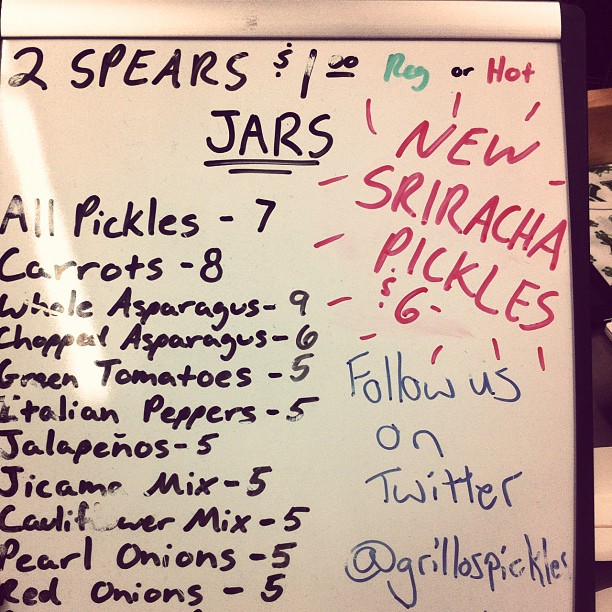 2 SPEARS $1.00 Reg or Hot
JARS
All Pickles - 7
Carrots - 8
Whole Asparagus - 9
Chopped Asparagus - 6
Green Tomatoes - 5
Italian Peppers - 5
Jalapeños - 5
Jicama Mix - 5
Cauliflower Mix - 5
Pearl Onions - 5
Red Onions - 5
NEW
SRIRACHA
PICKLES
$6-
Follow us
on
Twitter
@grillospickles